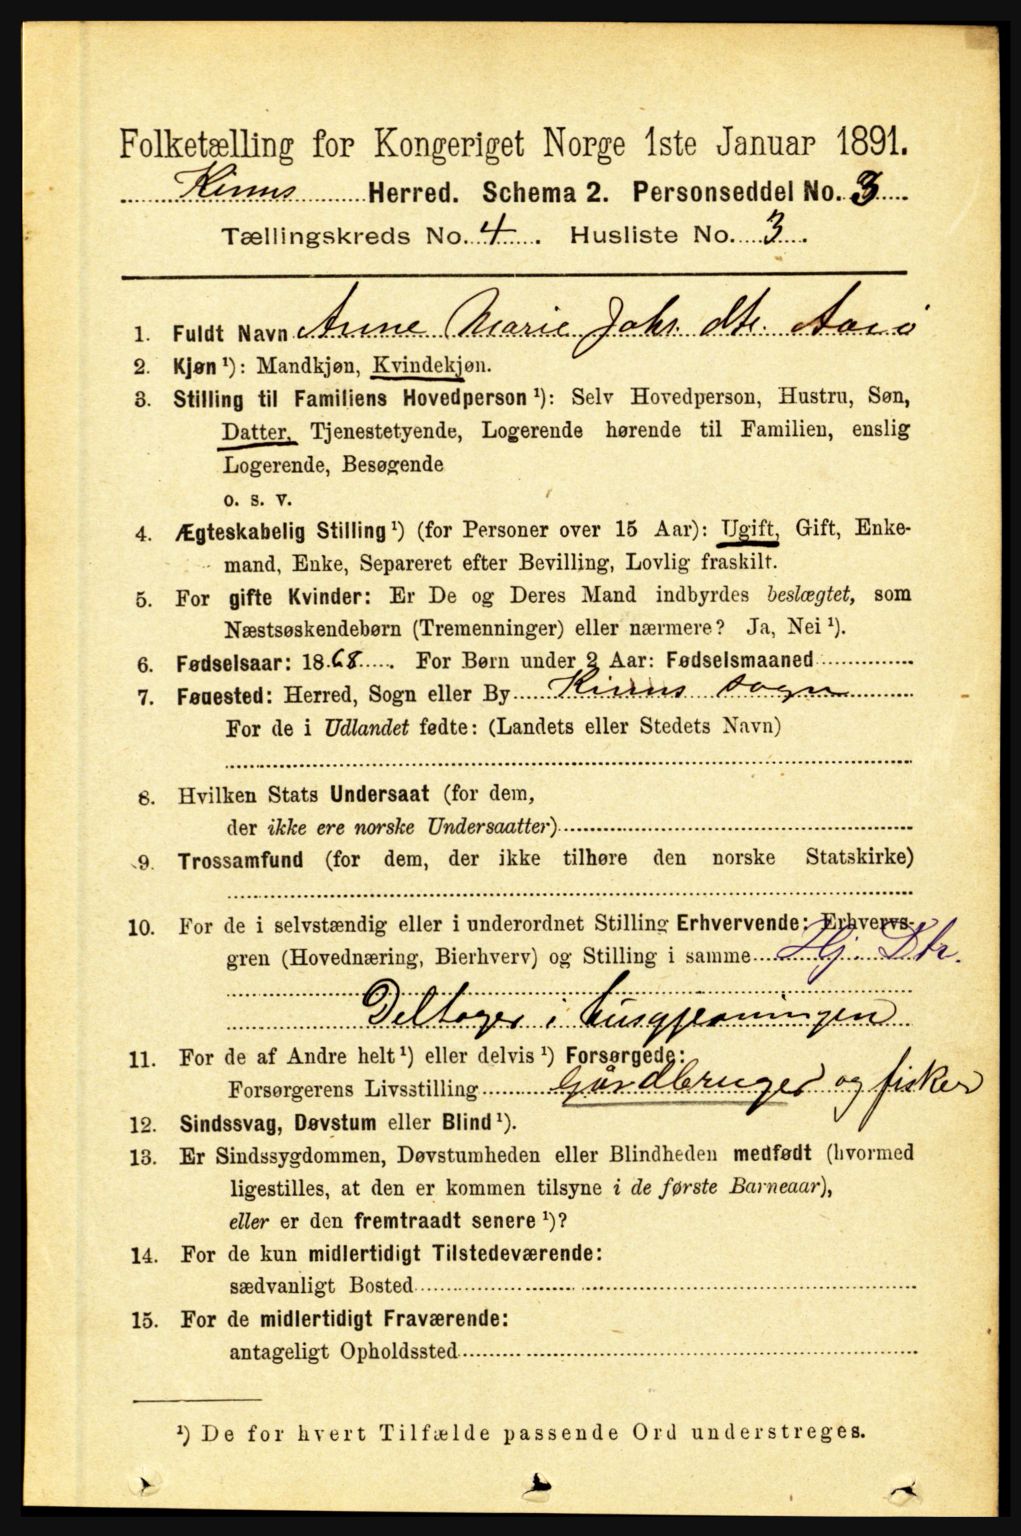 Folketælling for Kongeriget Norge 1ste Januar 1891.
Kinns Herred. Schema 2. Personseddel No. 3
Tællingskreds No. 4. Husliste No. 3.
1. Fuldt Navn Anne Marie Johs. dtr.
2. Kjøn ¹): Mandkjøn, Kvindekjøn.
3. Stilling til Familiens Hovedperson ¹): Selv Hovedperson, Hustru, Søn,
Datter, Tjenestetyende, Logerende hørende til Familien, enslig
Logerende, Besøgende
o. s. v.
4. Ægteskabelig Stilling ¹) (for Personer over 15 Aar): Ugift, Gift, Enke-
mand, Enke, Separeret efter Bevilling, Lovlig fraskilt.
5. For gifte Kvinder: Er De og Deres Mand indbyrdes beslægtet, som
Næstsøskendebørn (Tremenninger) eller nærmere? Ja, Nei ¹).
6. Fødselsaar: 1868. For Børn under 2 Aar: Fødselsmaaned
7. Føuested: Herred, Sogn eller By Kinns sogn
For de i Udlandet fødte: (Landets eller Stedets Navn)
8. Hvilken Stats Undersaat (for dem,
der ikke ere norske Undersaatter)
9. Trossamfund (for dem, der ikke tilhøre den norske Statskirke)
10. For de i selvstændig eller i underordnet Stilling Erhvervende: Erhvervs-
gren (Hovednæring, Bierhverv) og Stilling i samme Hj. Dtr.
Deltager i husgjerningen
11. For de af Andre helt ¹) eller delvis ¹) Forsørgede:
Forsørgerens Livsstilling Gårdbruger og fisker
12. Sindssvag, Døvstum eller Blind ¹).
13. Er Sindssygdommen, Døvstumheden eller Blindheden medfødt (hvormed
ligestilles, at den er kommen tilsyne i de første Barneaar),
eller er den fremtraadt senere ¹)?
14. For de kun midlertidigt Tilstedeværende:
sædvanligt Bosted
15. For de midlertidigt Fraværende:
antageligt Opholdssted
¹) De for hvert Tilfælde passende Ord understreges.